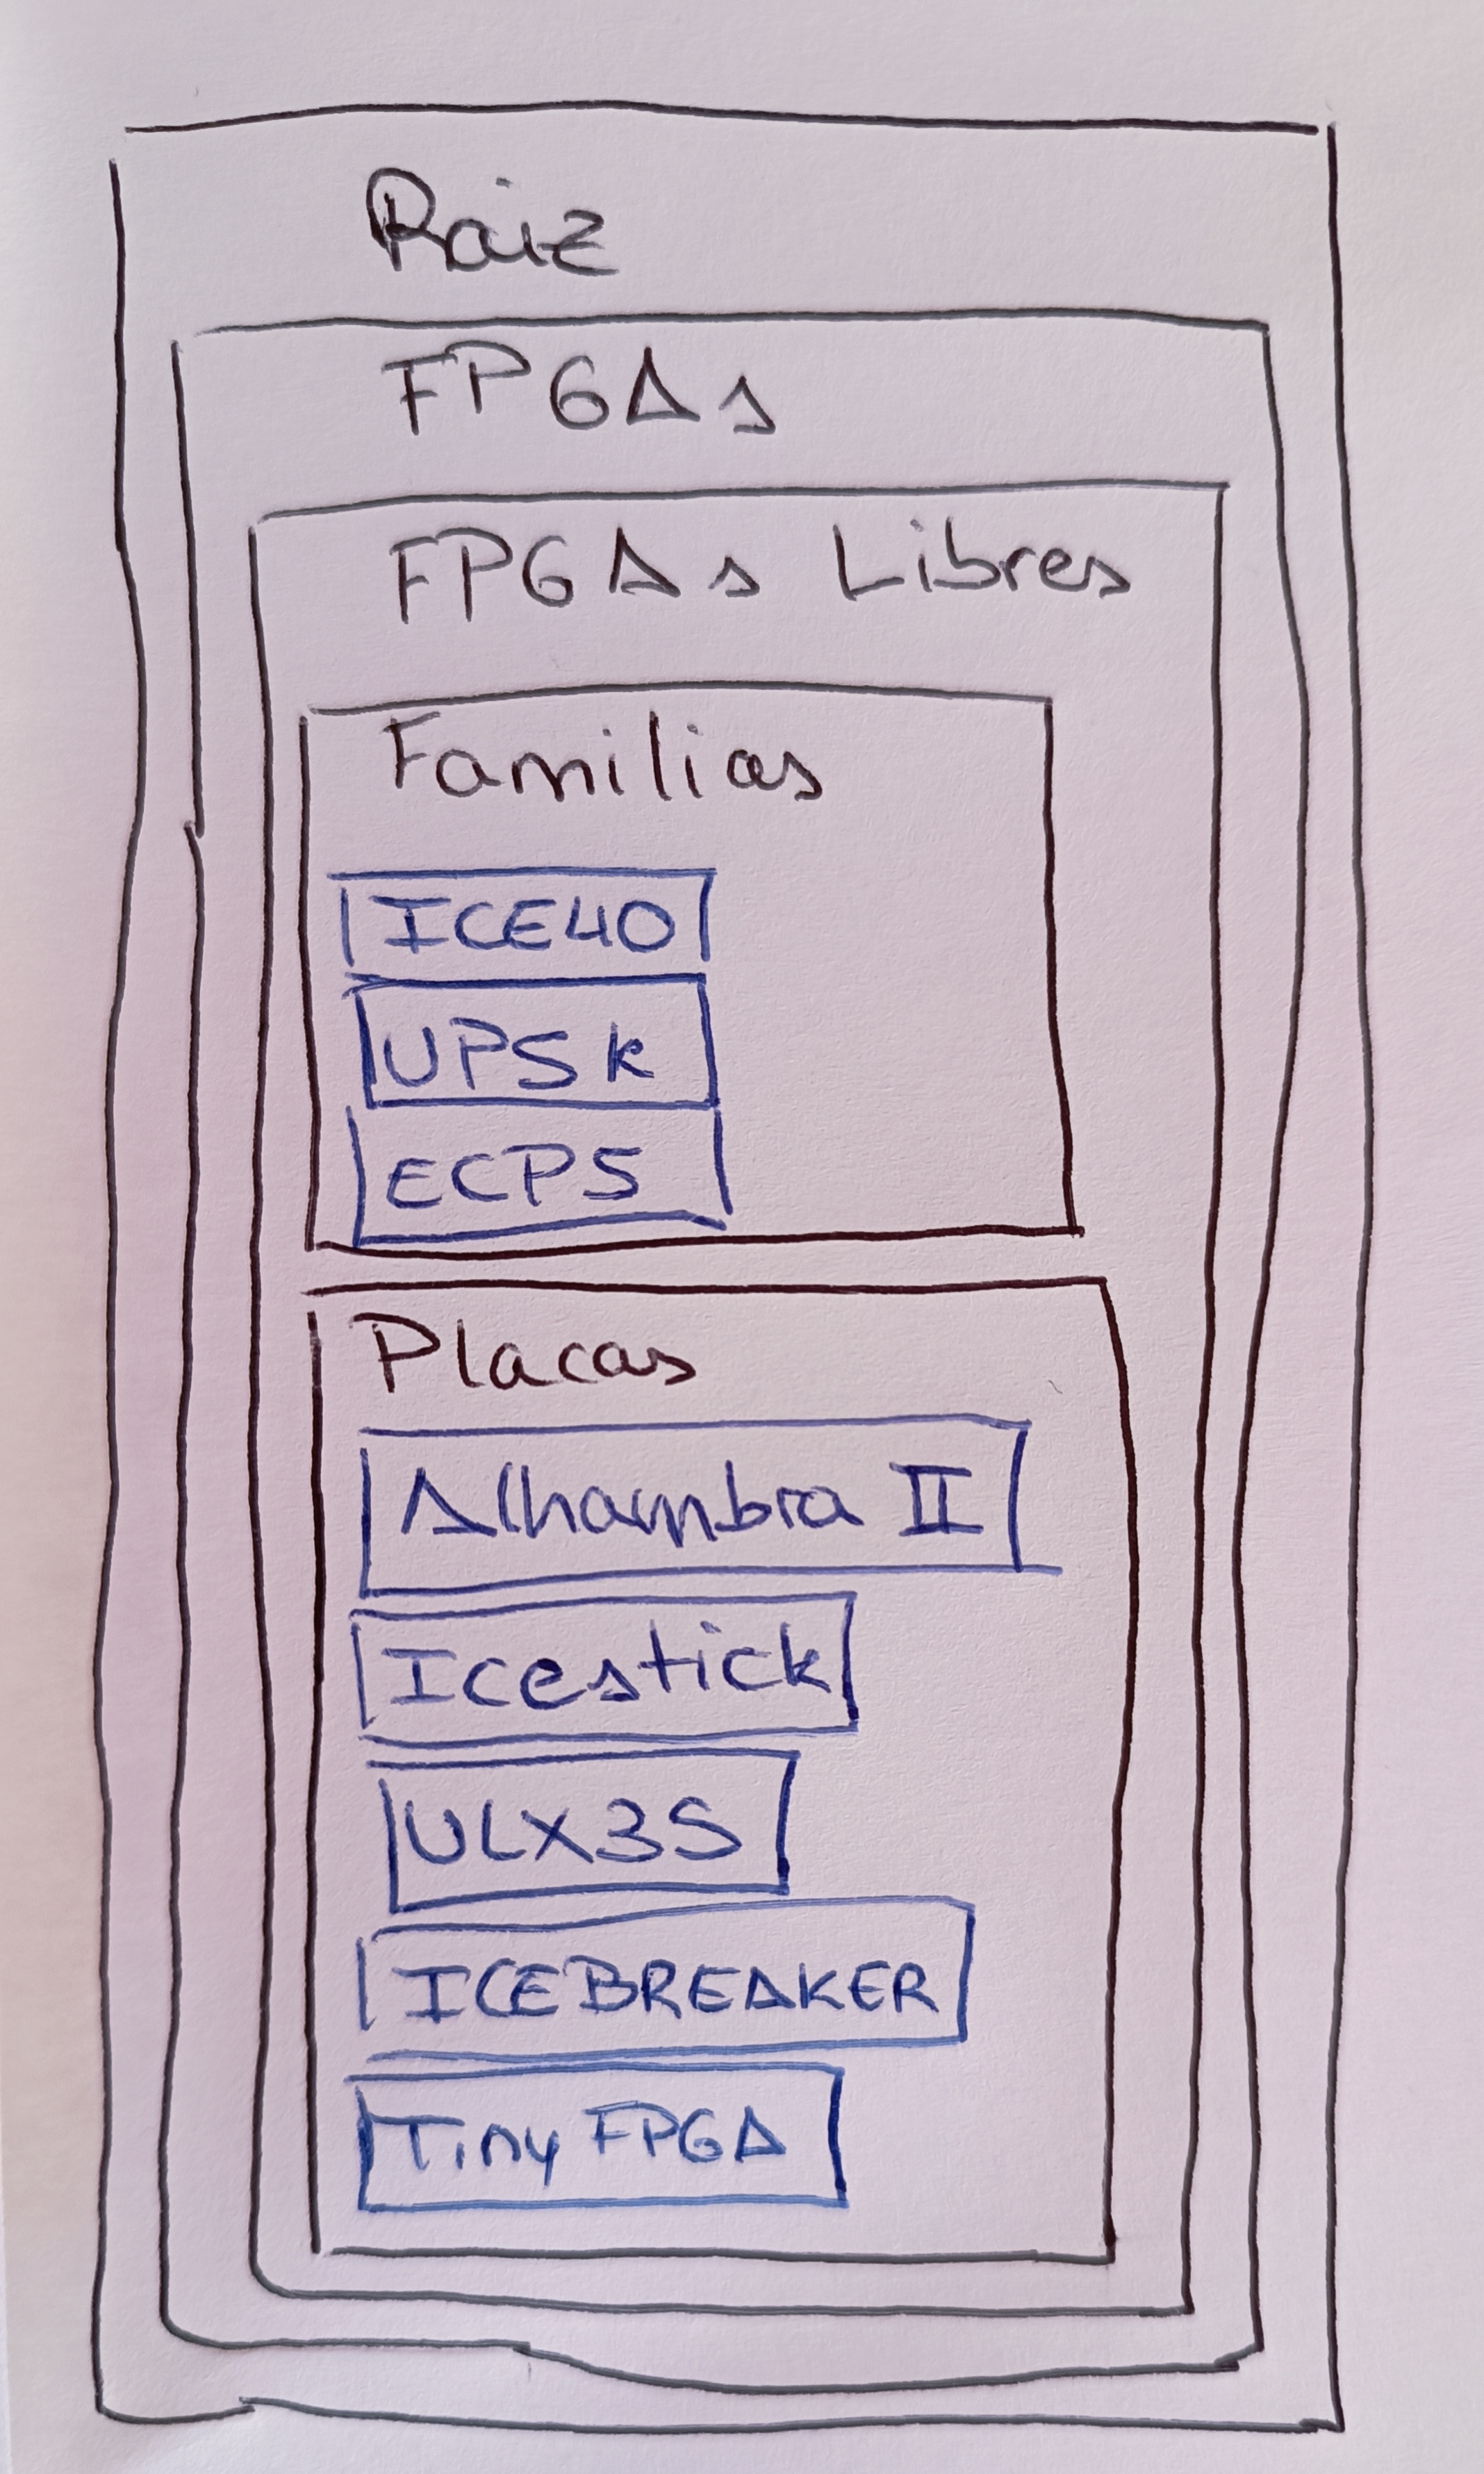 Raiz
FPGAs
FPGAs Libres
Familias
ICE40
UP5k
ECP5
Placas
Alhambra II
Icestick
ULX3S
ICEBREAKER
Tiny FPGA